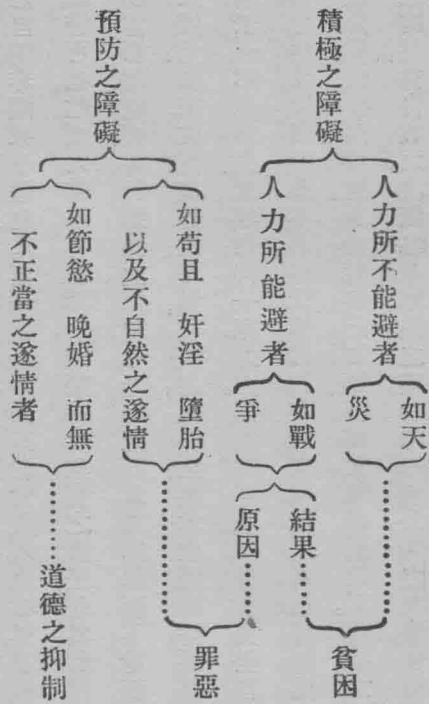 積極之障礙
人力所不能避者
如天
災
人力所能避者
如戰
爭
結果
原因
貧困
罪惡
預防之障礙
如苟且 奸淫 墮胎
以及不自然之遂情
如節慾 晚婚 而無
不正當之遂情者
道德之抑制